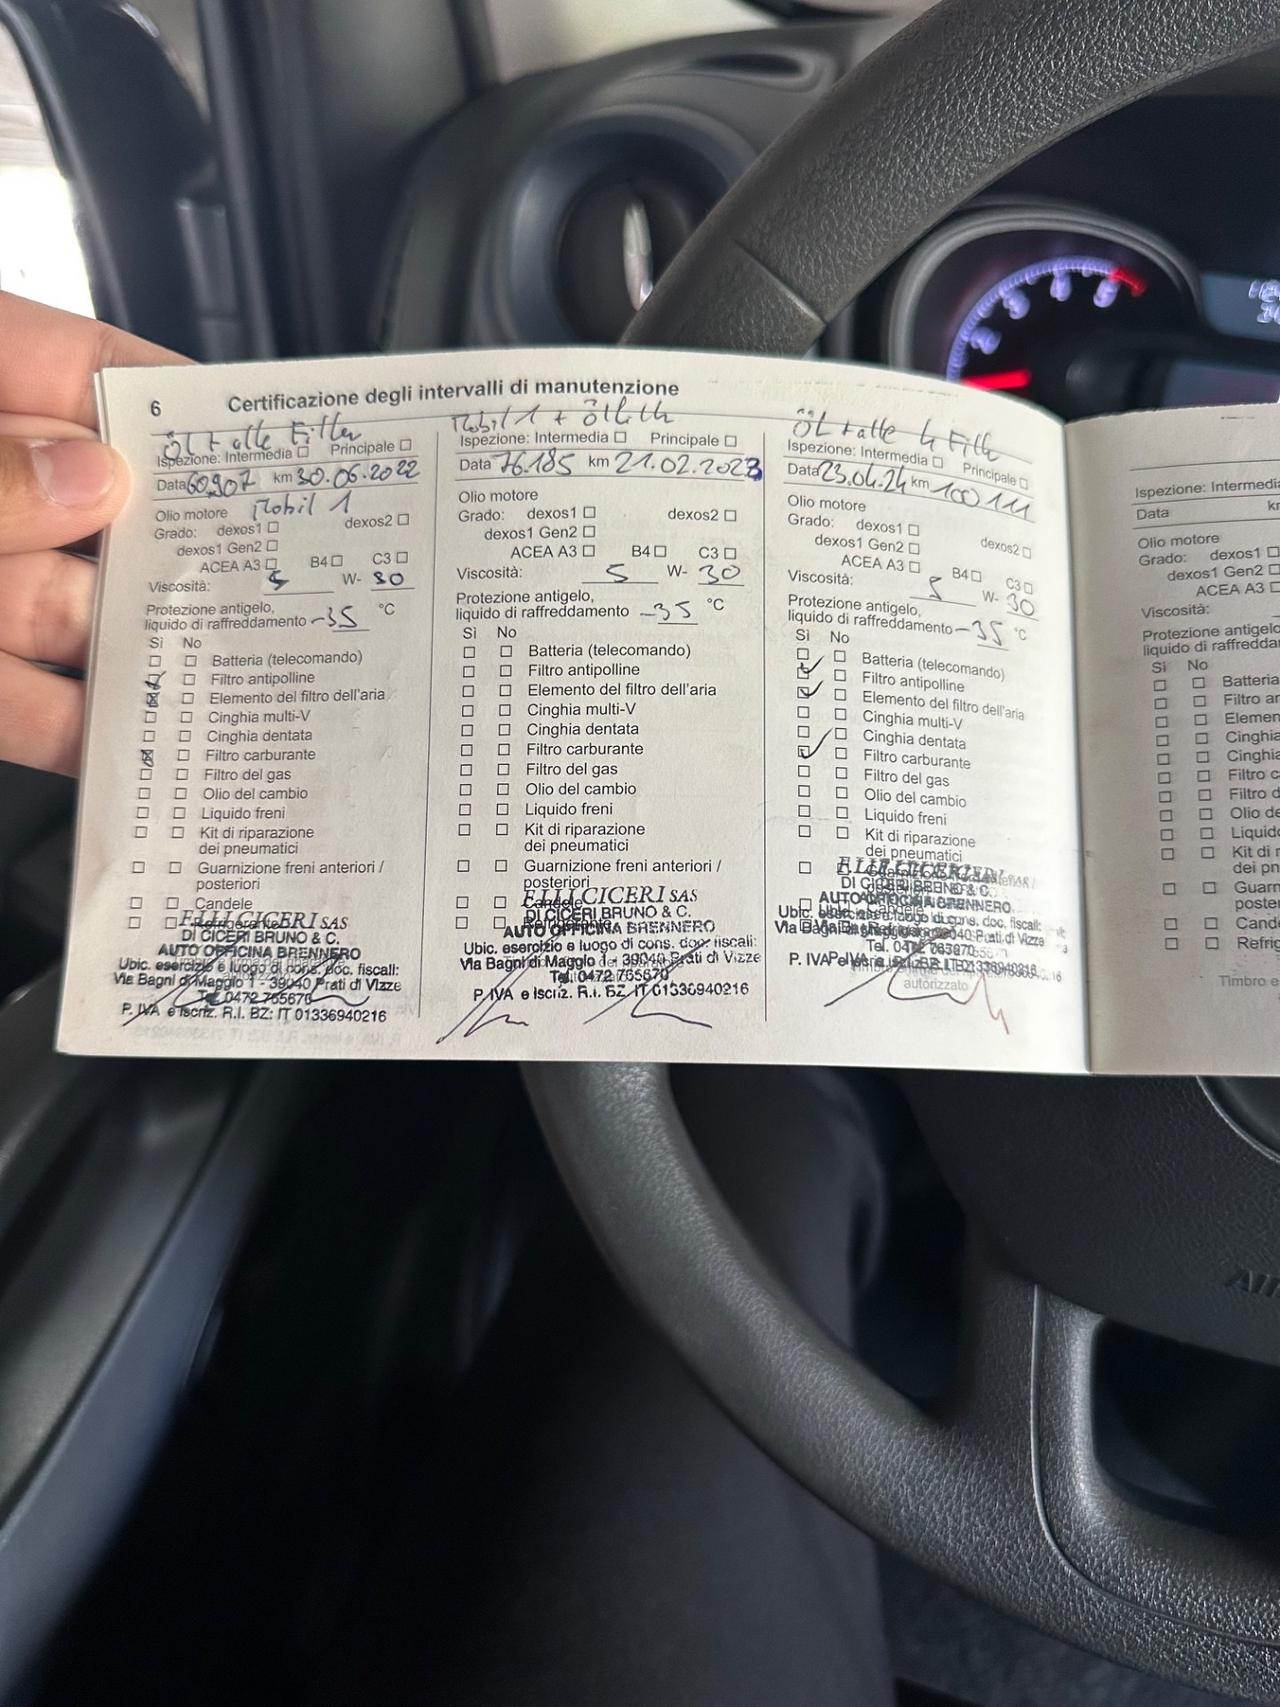 6 Certificazione degli intervalli di manutenzione
Öl + alle Filter
Ispezione: Intermedia Principale
Data 60907 km 30.06.2022
Olio motore Mobil 1
Grado: dexos1 dexos2
dexos1 Gen2
ACEA A3 B4 C3
Viscosità: 5 W- 30
Protezione antigelo,
liquido di raffreddamento -35 °C
Sì No
Batteria (telecomando)
Filtro antipolline
Elemento del filtro dell'aria
Cinghia multi-V
Cinghia dentata
Filtro carburante
Filtro del gas
Olio del cambio
Liquido freni
Kit di riparazione
dei pneumatici
Guarnizione freni anteriori /
posteriori
Candele
Refrigerante
F.LLI CICERI SAS
DI CICERI BRUNO & C.
AUTO OFFICINA BRENNERO
Ubic. esercizio e luogo di cons. doc. fiscali:
Via Bagni di Maggio 1 - 39040 Prati di Vizze
Tel. 0472 765670
P. IVA e Iscriz. R.I. BZ: IT 01336940216
Mobil 1 +
Ispezione: Intermedia Principale
Data 76.185 km 21.02.2023
Olio motore
Grado: dexos1 dexos2
dexos1 Gen2
ACEA A3 B4 C3
Viscosità: 5 W- 30
Protezione antigelo,
liquido di raffreddamento -35 °C
Sì No
Batteria (telecomando)
Filtro antipolline
Elemento del filtro dell'aria
Cinghia multi-V
Cinghia dentata
Filtro carburante
Filtro del gas
Olio del cambio
Liquido freni
Kit di riparazione
dei pneumatici
Guarnizione freni anteriori /
posteriori
Candele
Refrigerante
F.LLI CICERI SAS
DI CICERI BRUNO & C.
AUTO OFFICINA BRENNERO
Ubic. esercizio e luogo di cons. doc. fiscali:
Via Bagni di Maggio 1 - 39040 Prati di Vizze
Tel. 0472 765670
P. IVA e Iscriz. R.I. BZ: IT 01336940216
Öl + alle 4
Ispezione: Intermedia Principale
Data 23.04.24 km 100 111
Olio motore
Grado: dexos1 dexos2
dexos1 Gen2
ACEA A3 B4 C3
Viscosità: 5 W- 30
Protezione antigelo,
liquido di raffreddamento -35 °C
Sì No
Batteria (telecomando)
Filtro antipolline
Elemento del filtro dell'aria
Cinghia multi-V
Cinghia dentata
Filtro carburante
Filtro del gas
Olio del cambio
Liquido freni
Kit di riparazione
dei pneumatici
F.LLI CICERI
DI CICERI BRUNO & C.
AUTO OFFICINA BRENNERO
Ubic. esercizio e luogo di cons. doc. fiscali:
Via Bagni di Maggio 39040 Prati di Vizze
Tel. 0472 765670
P. IVA
autorizzato
Ispezione: Intermedia
Data
Olio motore
Grado: dexos1
dexos1 Gen2
ACEA A3
Viscosità:
Protezione antigelo,
liquido di
Sì No
Batteria
Filtro
Cinghia
Cinghia
Filtro
Filtro
Olio
Kit di